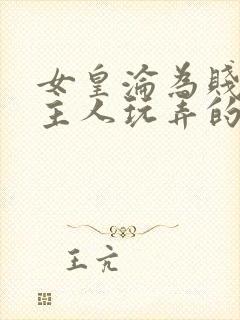 女皇淪為賤
主人玩弄的
王亢